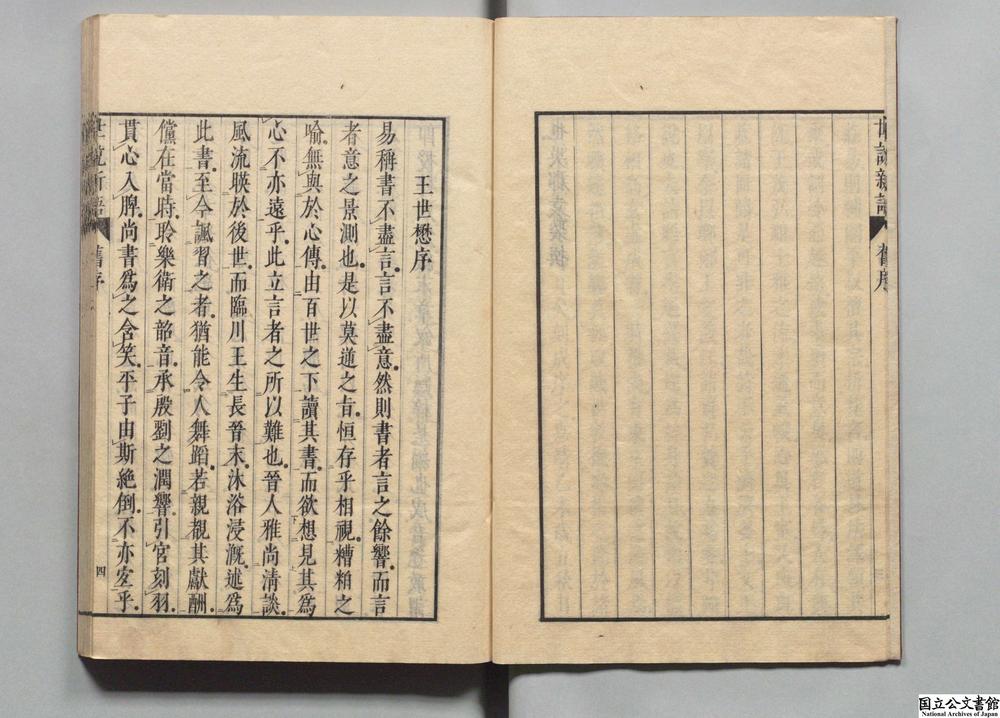 世說新語
舊序
王世懋序
易稱書不盡言言不盡意然則書者言之餘響而言
者意之景測也是以莫逆之旨恒存乎相視糟粕之
喻無與於心傳由百世之下讀其書而欲想見其爲
心不亦遠乎此立言者之所以難也晉人雅尚清談
風流暎於後世而臨川王生長晉末沐浴浸漑述爲
此書至今諷習之者猶能令人舞蹈若親覩其獻酬
儻在當時聆樂衛之韶音承殷劉之潤響引宮刻羽
貫心入脾尚書爲之含笑平子由斯絶倒不亦宜乎
世說新語
舊序
四
国立公文書館
National Archives of Japan